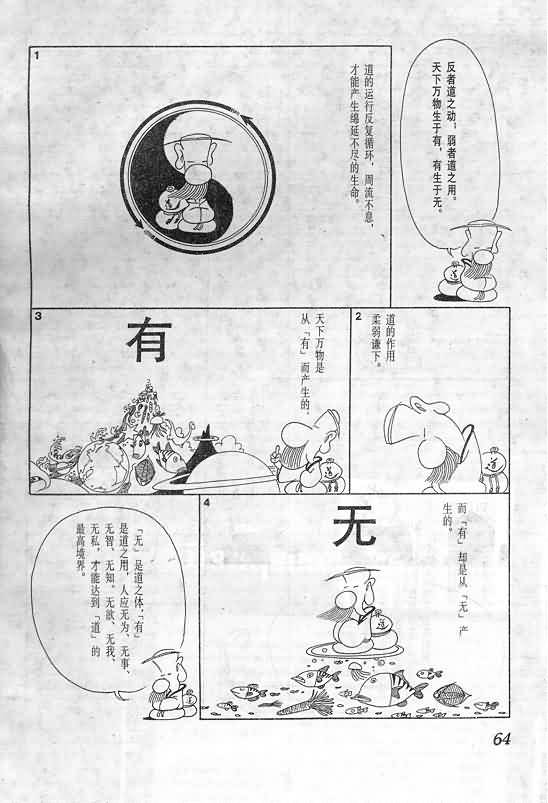 反者道之动；弱者道之用。
天下万物生于有，有生于无。
道
1
道的运行反复循环，周流不息，
才能产生绵延不尽的生命。
道
2
道的作用
柔弱谦下。
道
3
天下万物是
从「有」而产生的，
有
道
4
而「有」却是从「无」产
生的。
无
道
「无」是道之体，「有」
是道之用，人应无为、无事、
无智、无知、无欲、无我、
无私，才能达到「道」的
最高境界。
道
64